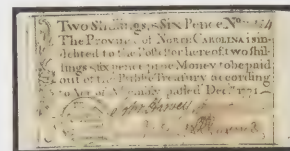 Two Shillings & Six Pence No
The Province of North Carolina is in-
debted to the Possessor hereof two shil-
lings & six pence proc Money to be paid
out of the Public Treasury according
to Act of Assembly passed Decr. 1771